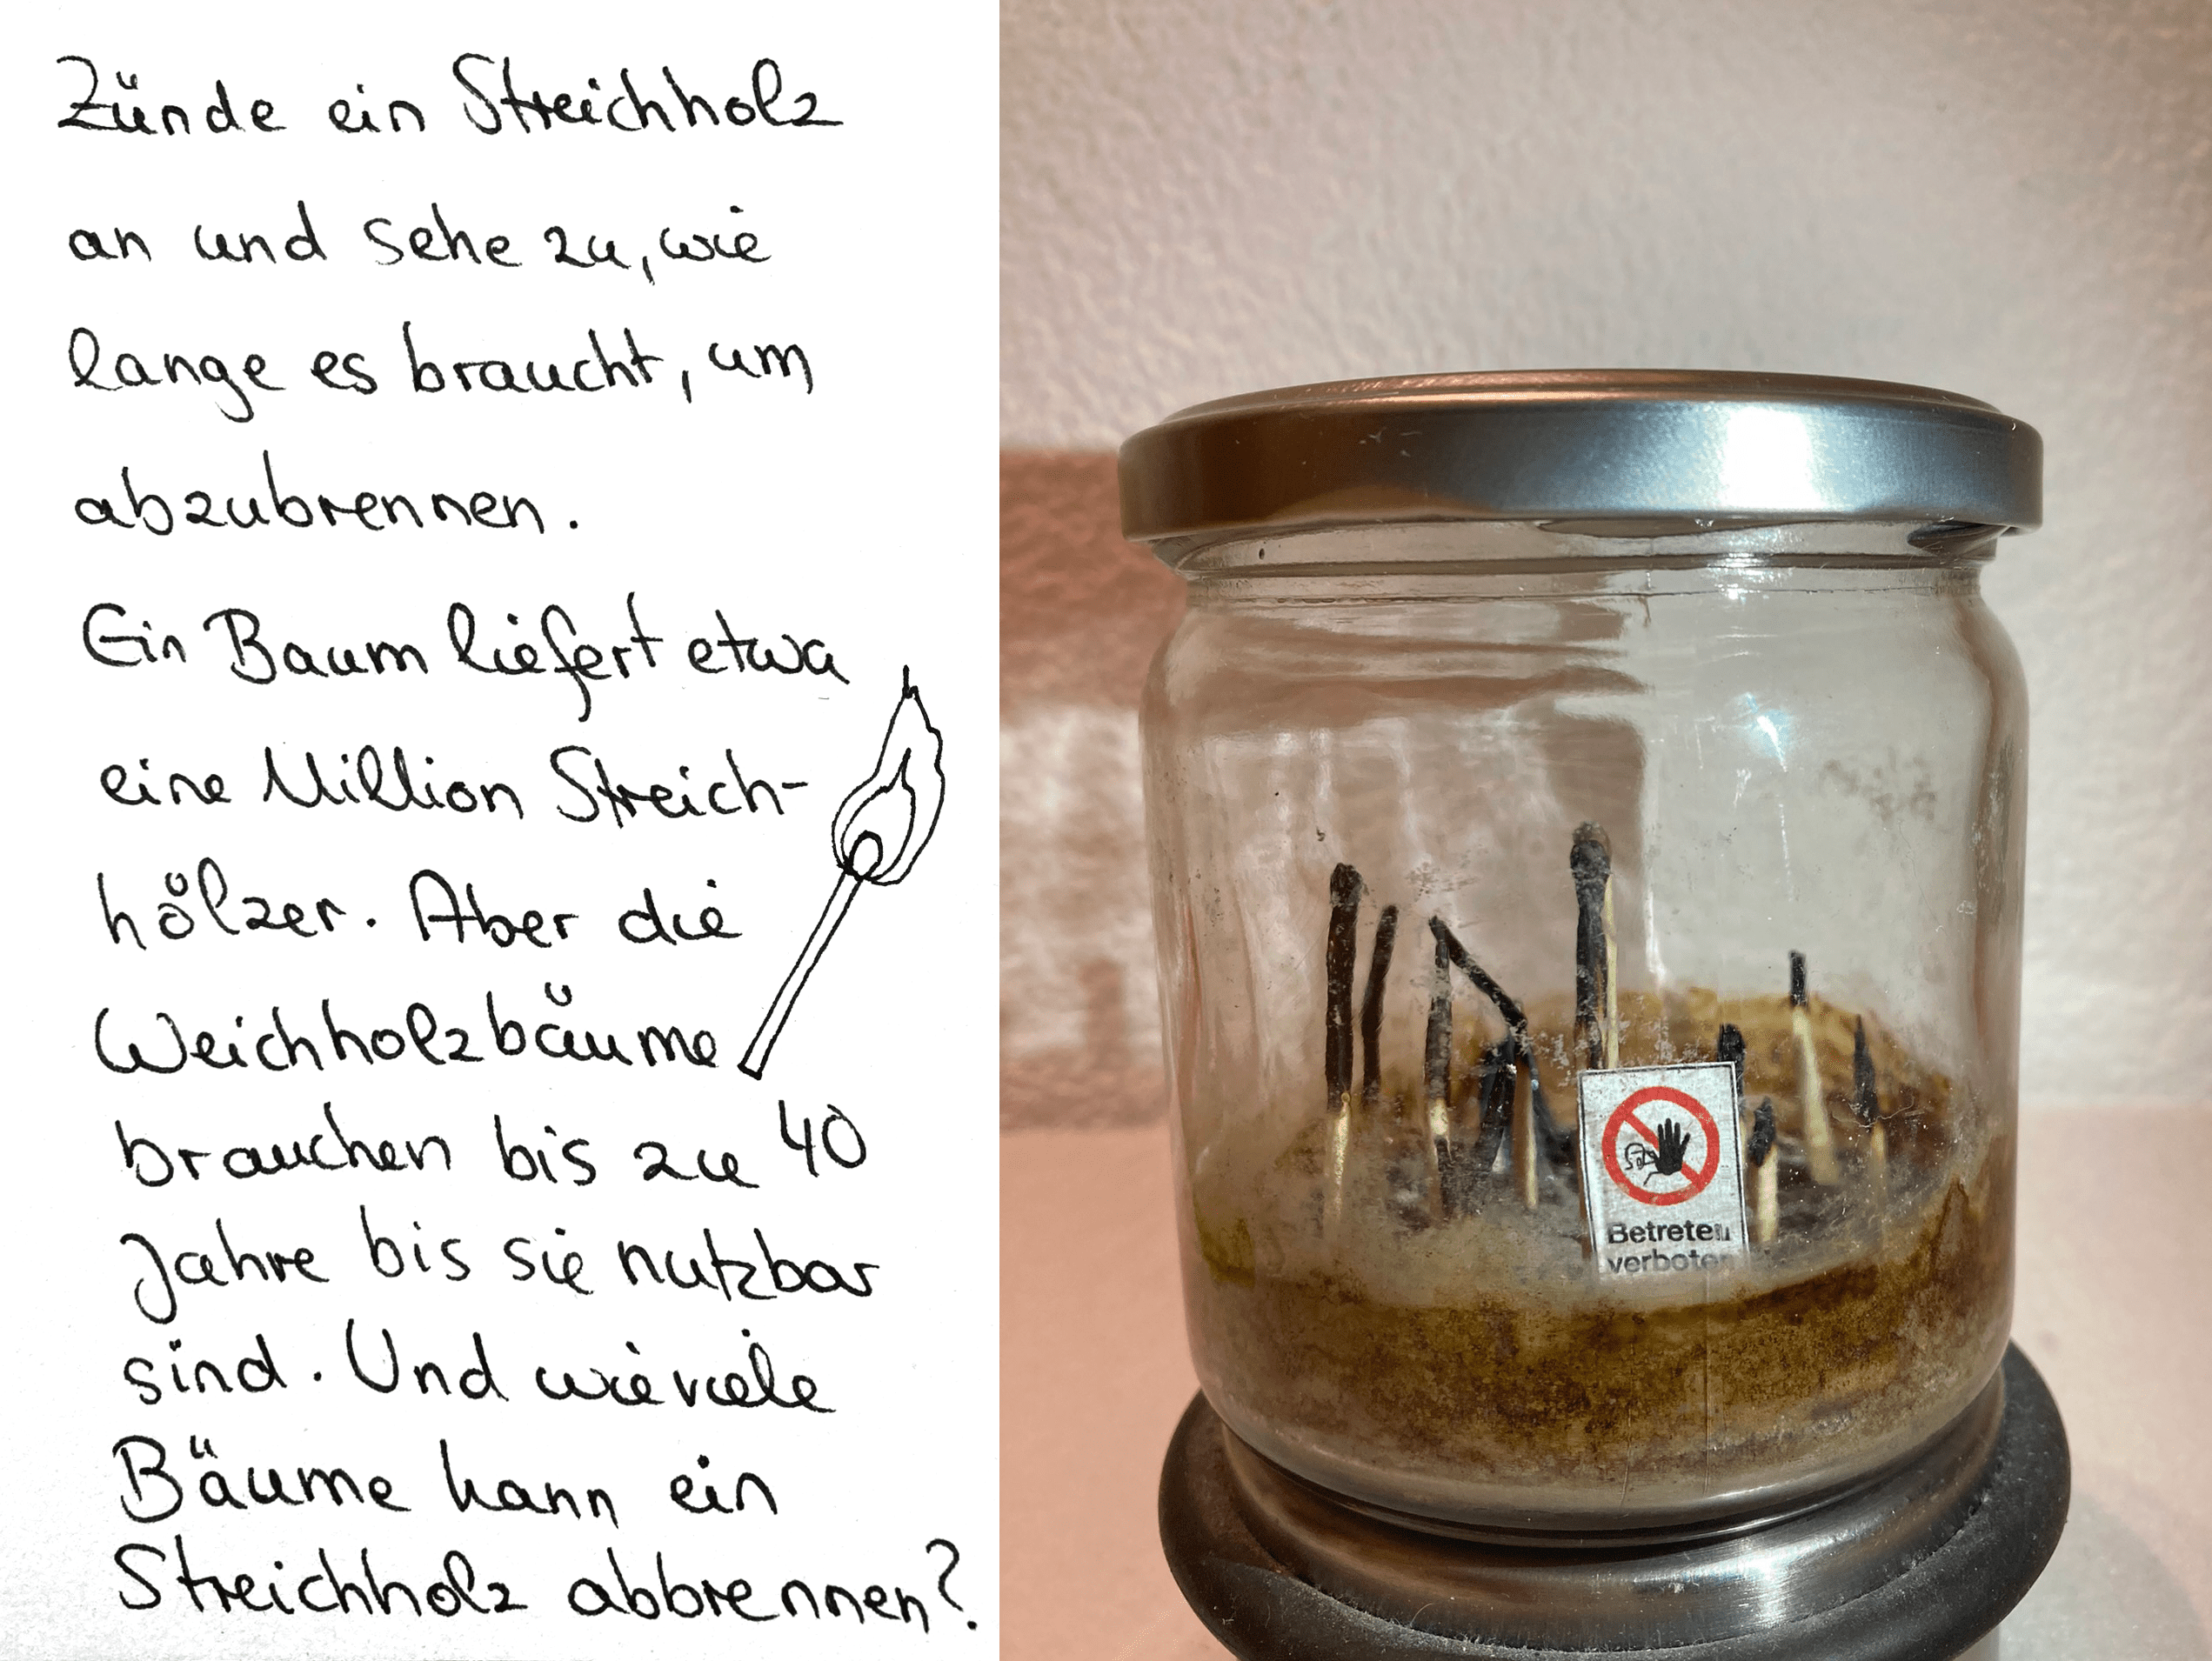 Zünde ein Streichholz
an und sehe zu, wie
lange es braucht, um
abzubrennen.
Ein Baum liefert etwa
eine Million Streich-
hölzer. Aber die
Weichholzbäume
brauchen bis zu 40
Jahre bis sie nutzbar
sind. Und wieviele
Bäume kann ein
Streichholz abbrennen?
Betreten
verboten